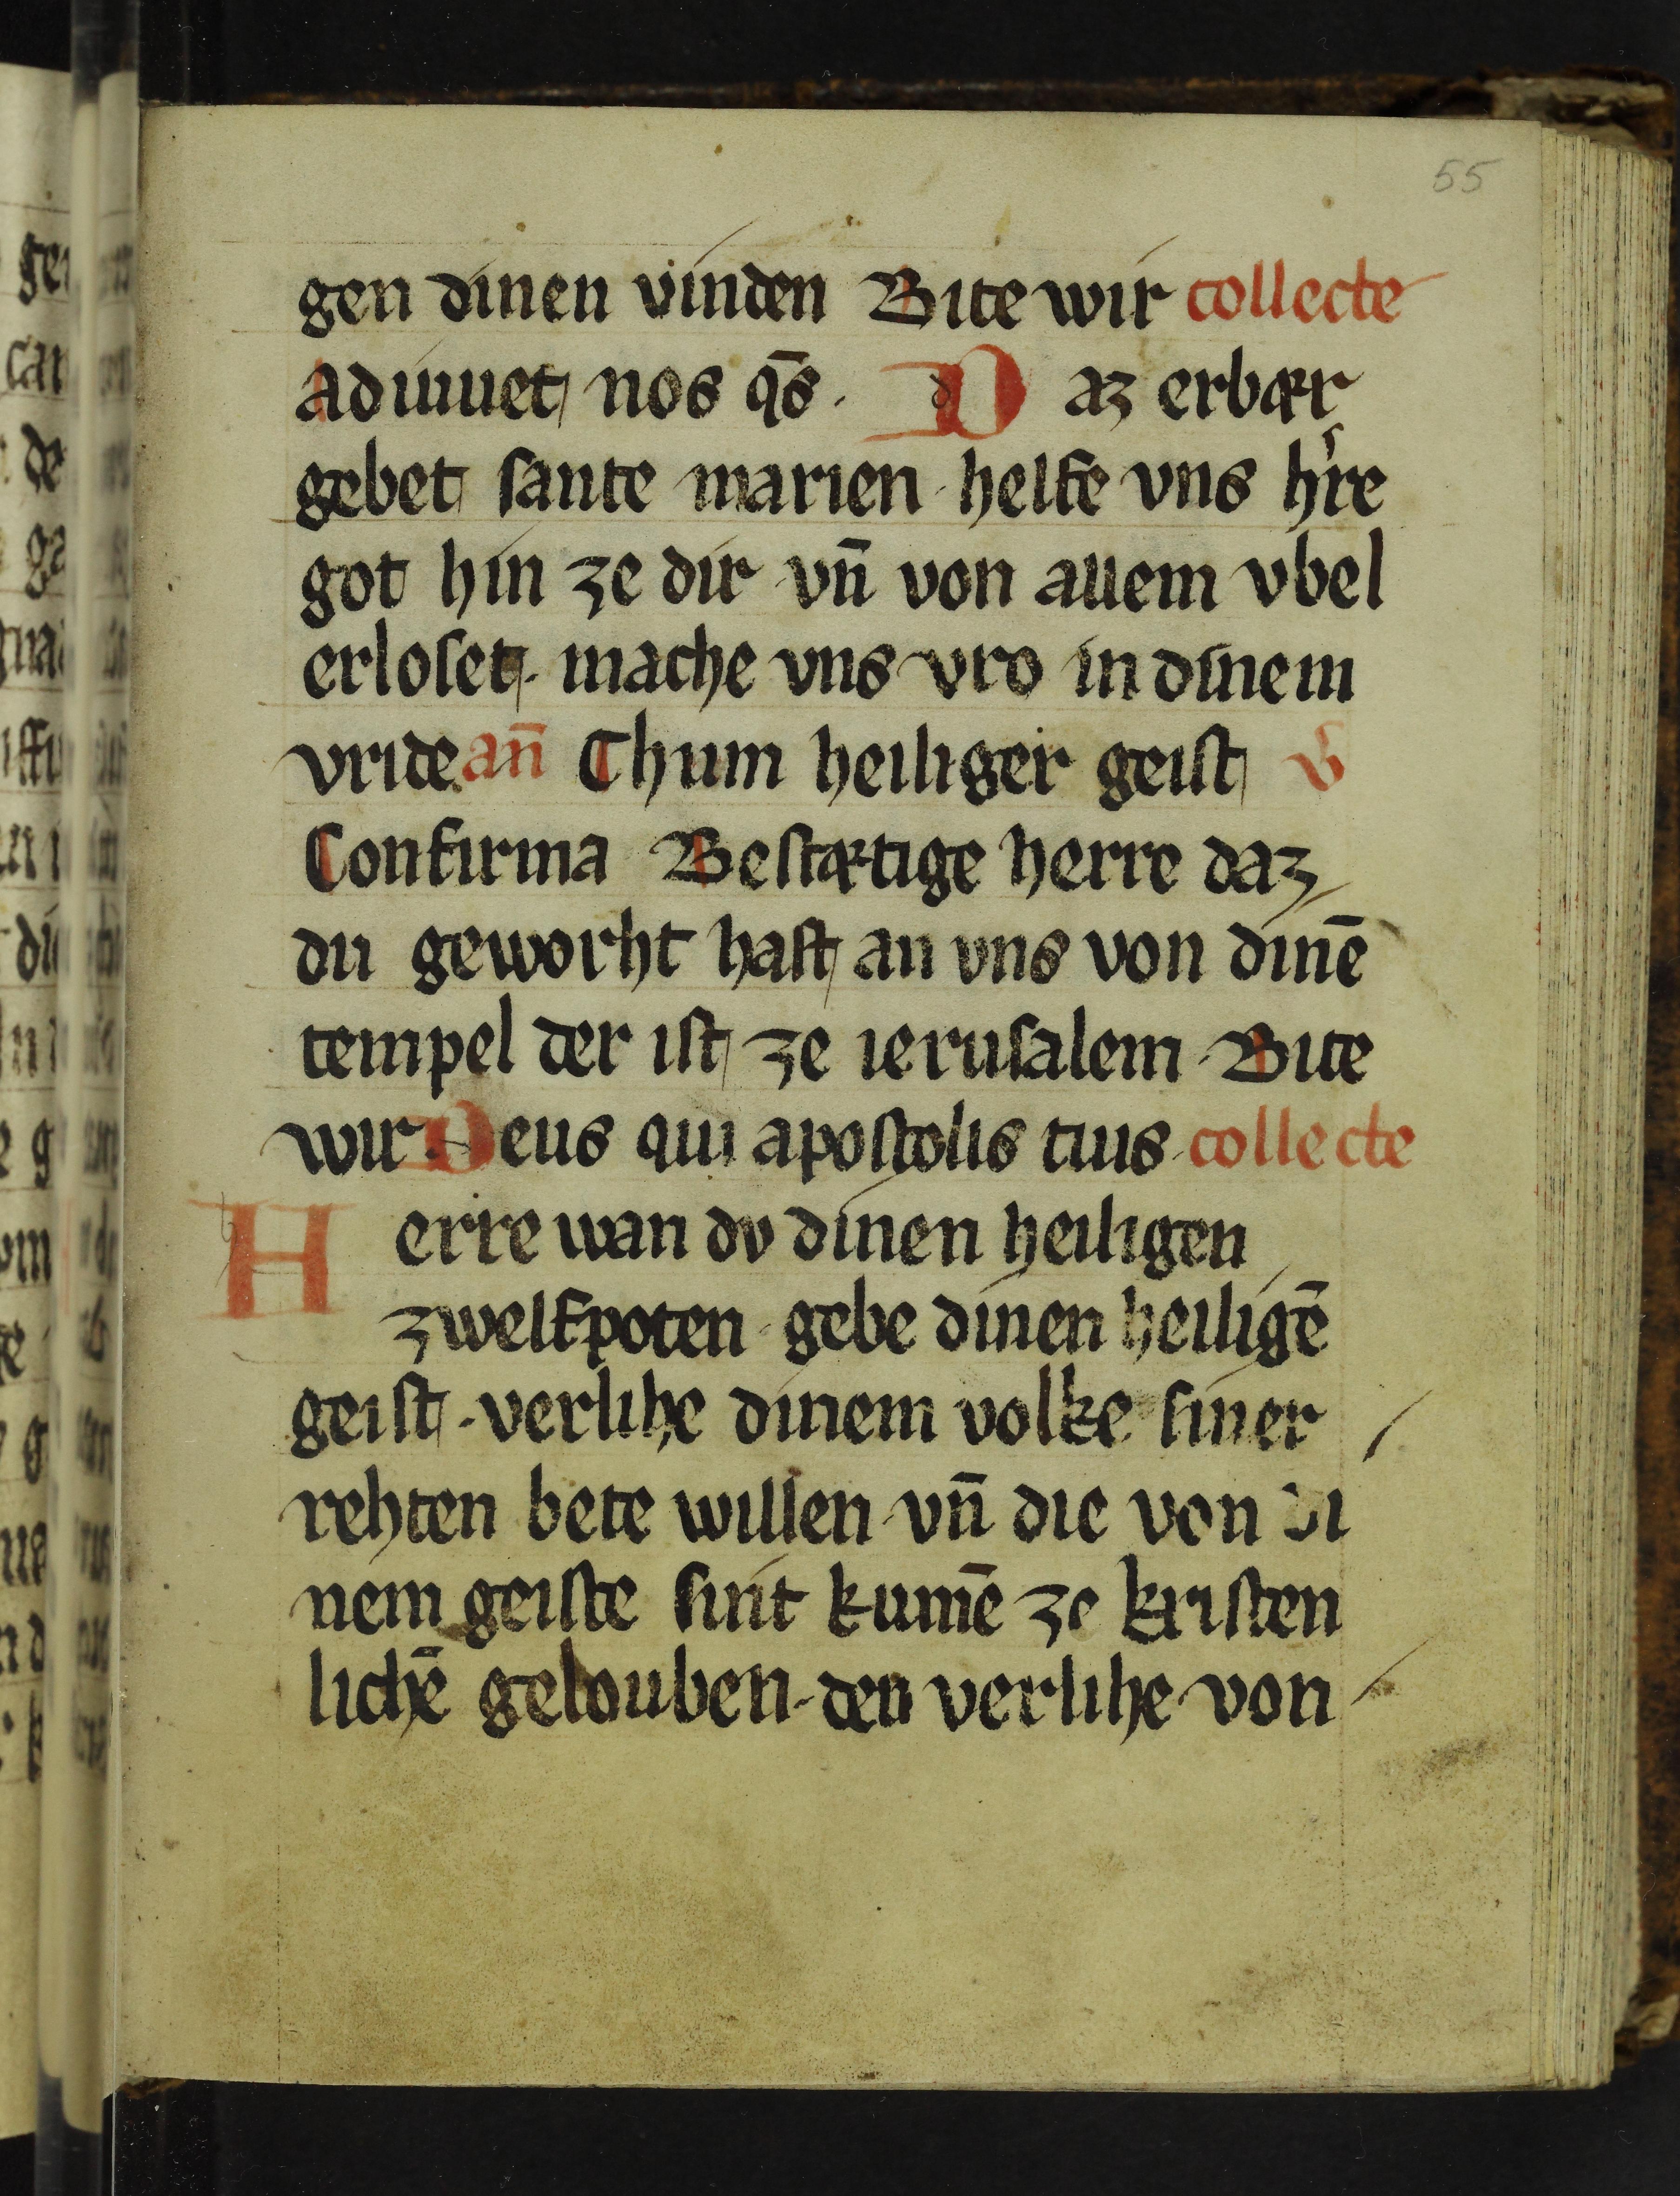 55
gen dinen vinden Bite wir collecte
Adiuuet nos q̄s. Daz erbær
gebet sante marien helfe vns hʳre
got hin ze dir vn̄ von allem vbel
erloset. mache vns vro in dinem
vride an̄ Chum heiliger geist v̄
Confirma Bestætige herre daz
du geworht hast an vns von dinē
tempel der ist ze ierusalem. Bite
wir. Deus qui apostolis tuis collecte
Herre wan dv dinen heiligen
zwelfpoten gebe dinen heiligē
geist. verlihe dinem volke siner
rehten bete willen vn̄ die von di
nem geiste sint kumē ze kristen
lichē gelouben. den verlihe von